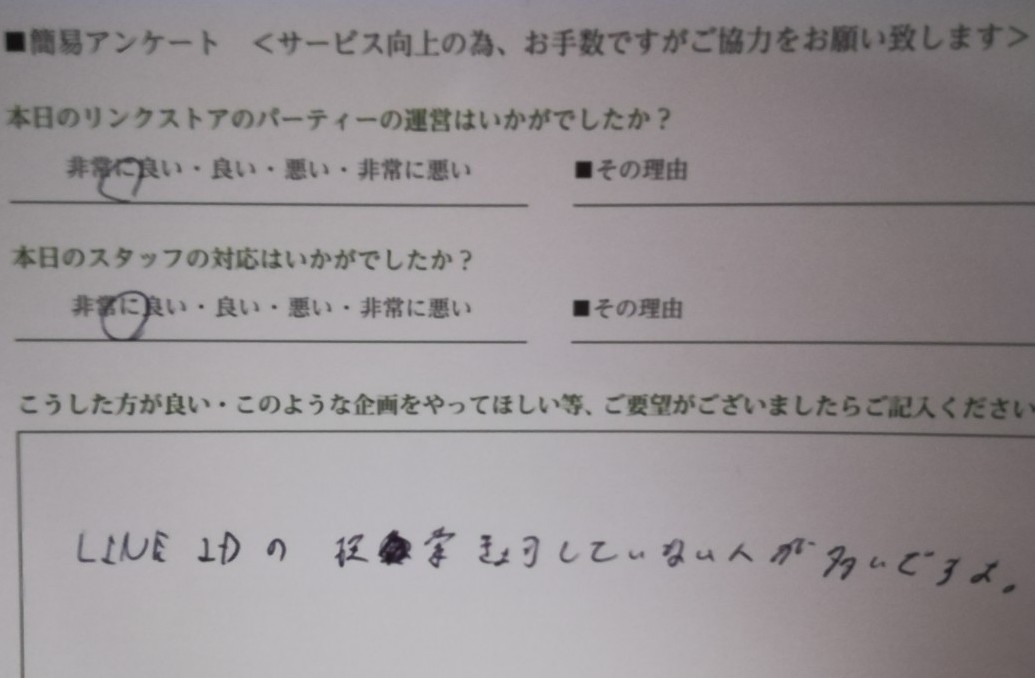 ■簡易アンケート <サービス向上の為、お手数ですがご協力をお願い致します>
本日のリンクストアのパーティーの運営はいかがでしたか?
非常に良い・良い・悪い・非常に悪い ■その理由
本日のスタッフの対応はいかがでしたか?
非常に良い・良い・悪い・非常に悪い ■その理由
こうした方が良い・このような企画をやってほしい等、ご要望がございましたらご記入ください
LINE IDの きょ可していない人が多いですよ。